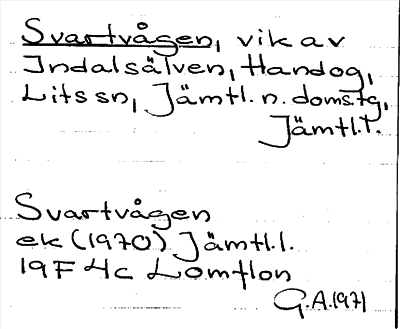 Svartvågen, vik av
Indalsälven, Handog,
Lits sn, Jämtl. n. domstg,
Jämtl.l.
Svartvågen
ek (1970) Jämtl.l.
19F 4c Lomtlon
G.A. 1971